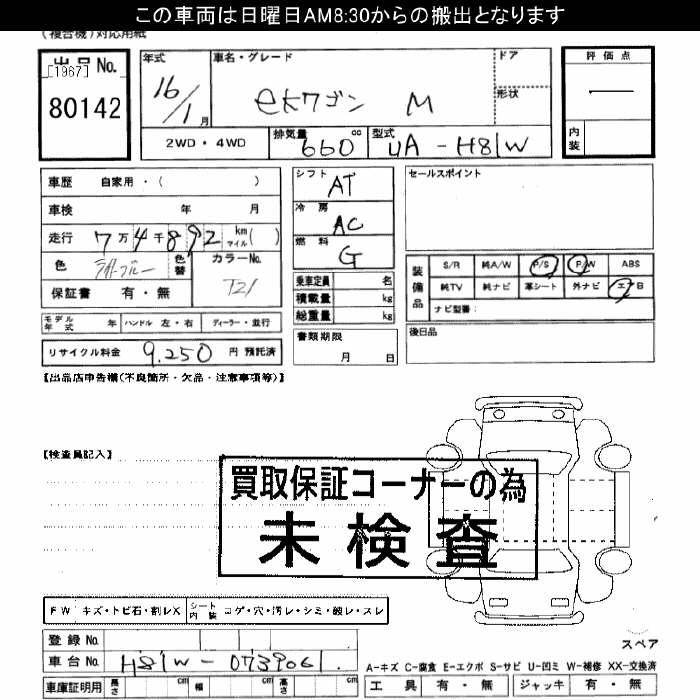 この車両は日曜日AM8:30からの搬出となります
(複合機)対応用紙
出品No.
[1967]
80142
年式
16/1月
車名・グレード
eKワゴン M
ドア
形状
評価点
内装
2WD・4WD
排気量
660
cc
型式
UA-H81W
車歴 自家用・( )
車検 年 月
走行 7万4千892 km マイル( )
色 ライトブルー 色替
カラーNo.
T21
保証書 有・無
シフト
AT
冷房
AC
燃料
G
乗車定員 名
積載量 kg
総重量 kg
セールスポイント
装備品
S/R 純A/W P/S P/W ABS
純TV 純ナビ 革シート 外ナビ エアB
ナビ型番:
モデル年式 年 ハンドル 左・右 ディーラー・並行
書類期限
月 日
後日品
リサイクル料金 9,250 円 預託済
【出品店申告欄(不良箇所・欠品・注意事項等)】
【検査員記入】
買取保証コーナーの為
未検査
FW キズ・トビ石・割レX シート内装 コゲ・穴・汚レ・シミ・破レ・スレ
登録No.
車台No. H81W-0739061
スペア
A-キズ C-腐食 E-エクボ S-サビ U-凹ミ W-補修 XX-交換済
車庫証明用 長さ cm 幅 cm 高さ cm
工具 有・無 ジャッキ 有・無